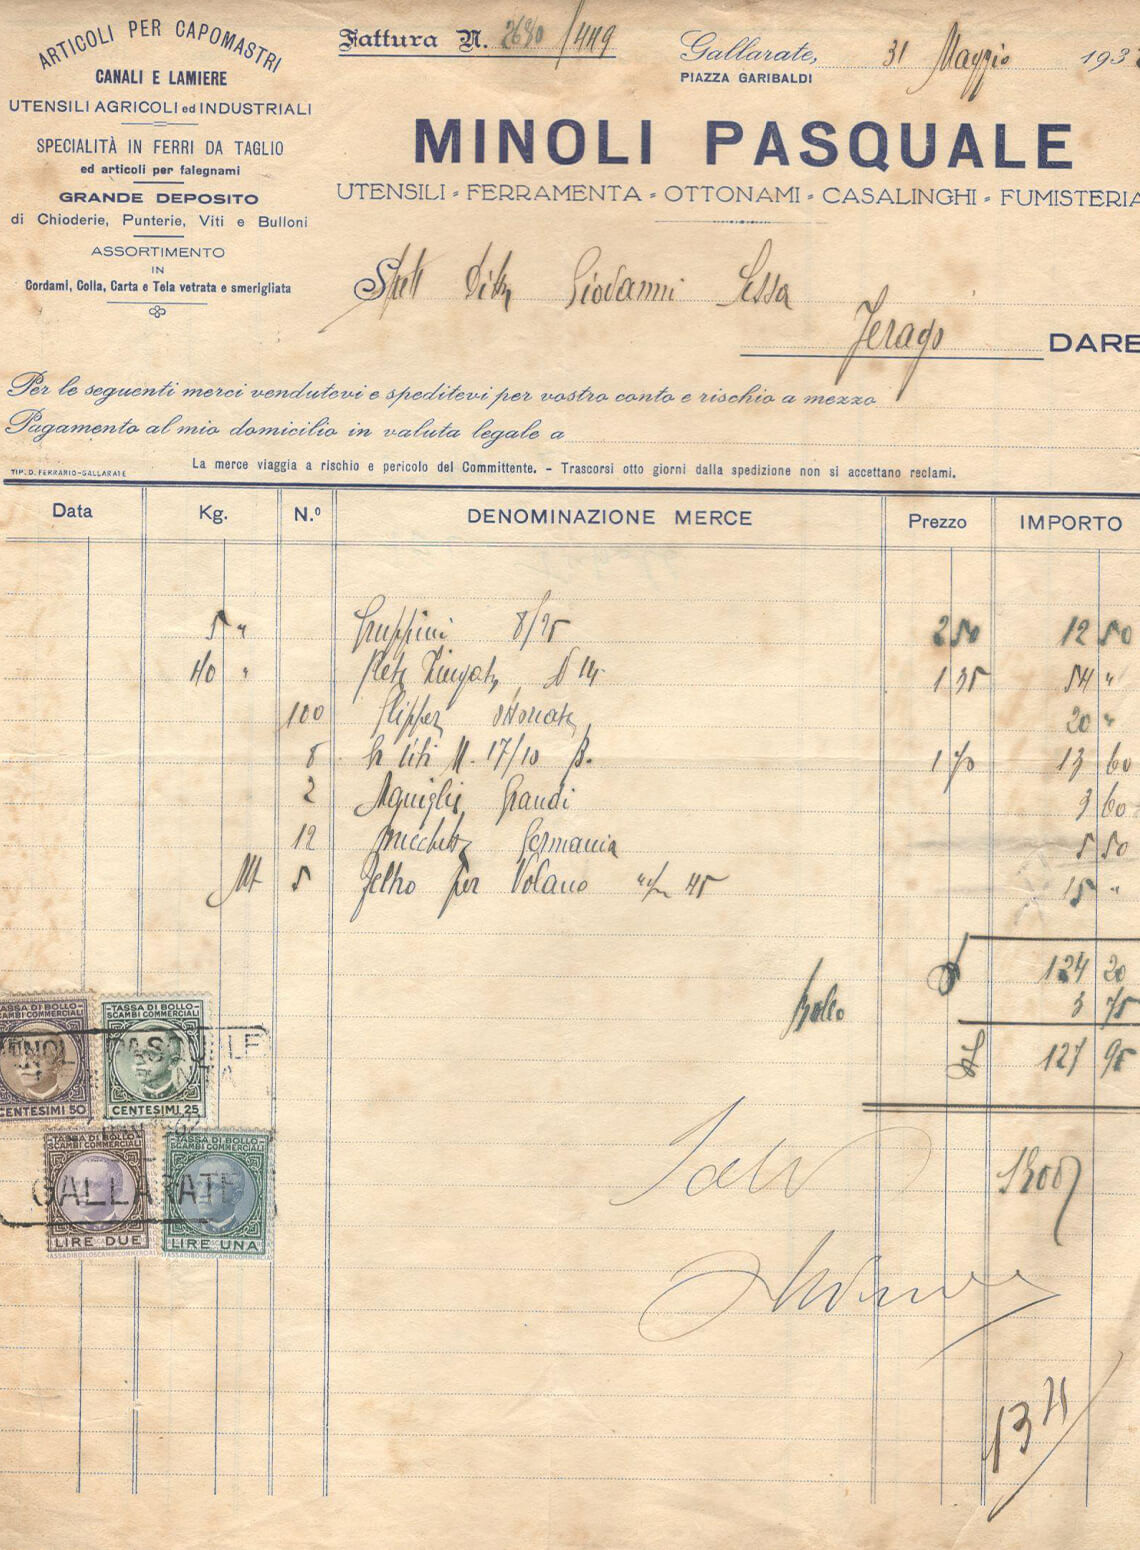 ARTICOLI PER CAPOMASTRI
CANALI E LAMIERE
UTENSILI AGRICOLI ed INDUSTRIALI
SPECIALITÀ IN FERRI DA TAGLIO
ed articoli per falegnami
GRANDE DEPOSITO
di Chioderie, Punterie, Viti e Bulloni
ASSORTIMENTO
IN
Cordami, Colla, Carta e Tela vetrata e smerigliata
Fattura N. /449
Gallarate, 31 Maggio 193
PIAZZA GARIBALDI
MINOLI PASQUALE
UTENSILI - FERRAMENTA - OTTONAMI - CASALINGHI - FUMISTERIA
Spett Ditta Giovanni Sessa
Jerago DARE
Per le seguenti merci vendutevi e speditevi per vostro conto e rischio a mezzo
Pagamento al mio domicilio in valuta legale a
TIP. D. FERRARIO-GALLARATE
La merce viaggia a rischio e pericolo del Committente. - Trascorsi otto giorni dalla spedizione non si accettano reclami.
Data Kg. N.º DENOMINAZIONE MERCE Prezzo IMPORTO
5 " Gruppini 8/25 2 50 12 50
40 " Rete Zingata N 14 1 35 54 "
100 20 "
8 M. 17/10 1 70 13 60
2 Grandi 3 60
12 Germania 5 50
Mt 5 Feltro per Volano 45 15 "
124 20
Bollo 3 75
127 95
TASSA DI BOLLO
SCAMBI COMMERCIALI
CENTESIMI 50
TASSA DI BOLLO
SCAMBI COMMERCIALI
CENTESIMI 25
MINOLI PASQUALE
TASSA DI BOLLO
SCAMBI COMMERCIALI
LIRE DUE
TASSA DI BOLLO
SCAMBI COMMERCIALI
LIRE UNA
GALLARATE